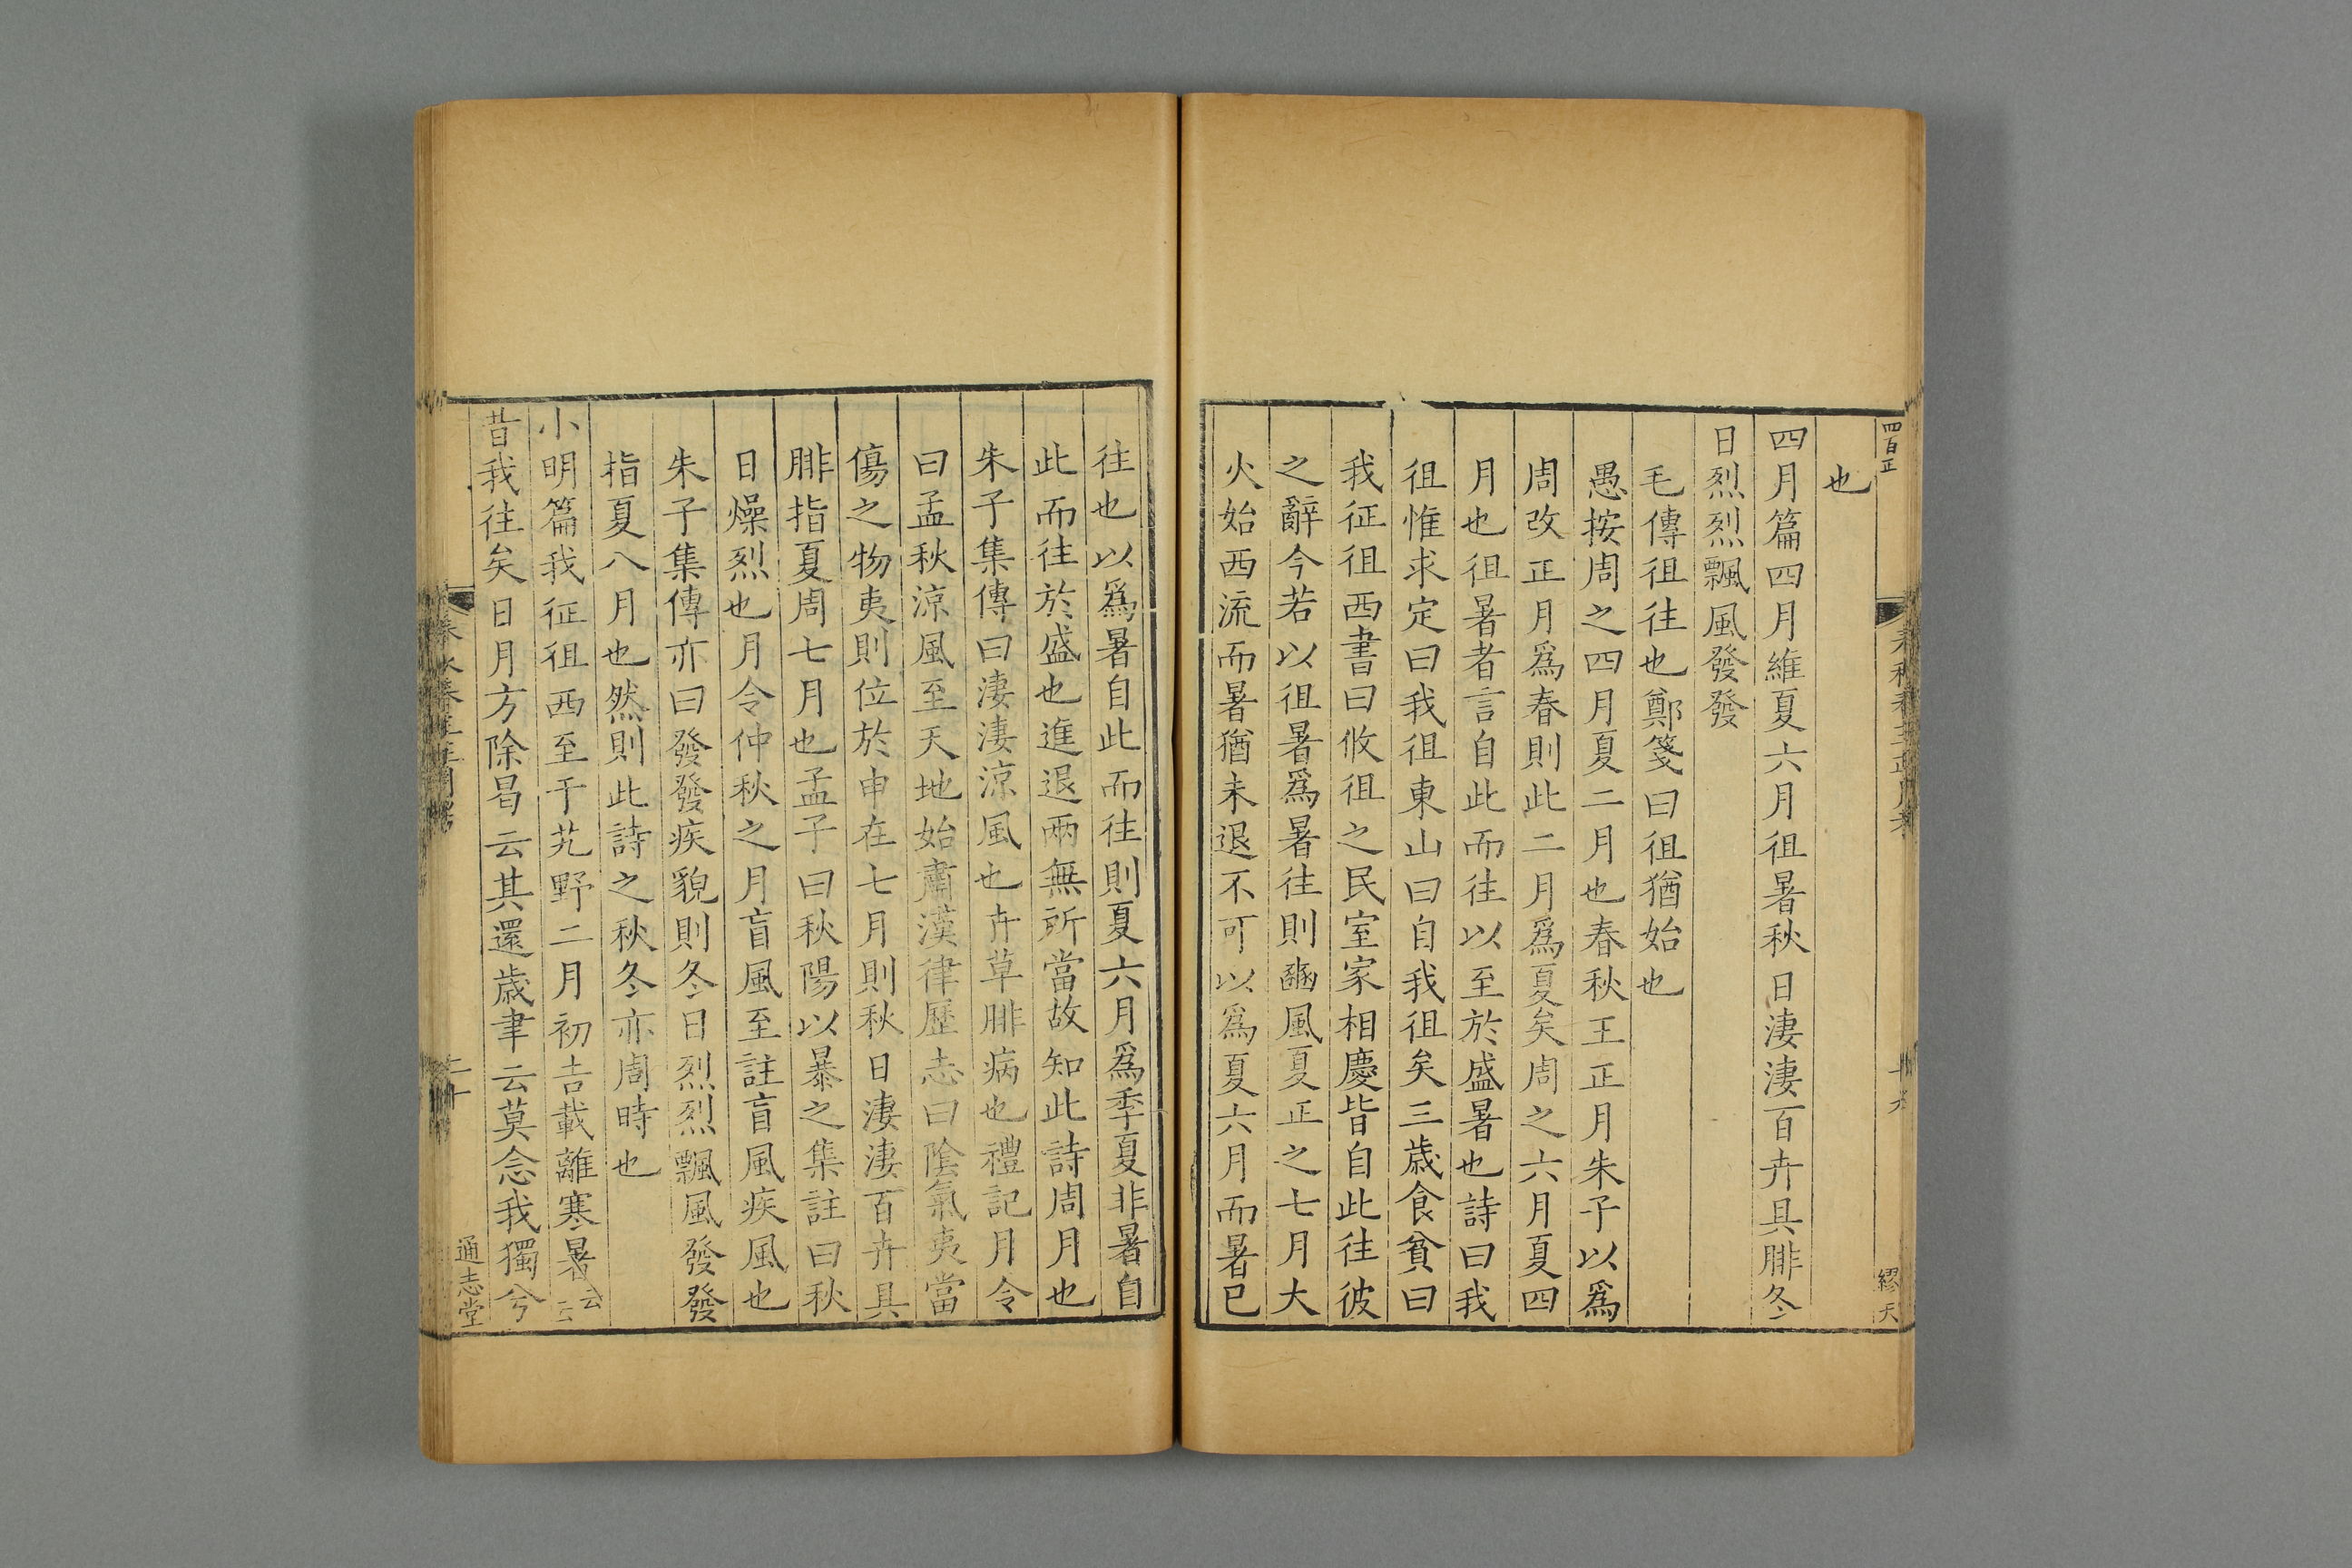 四百正
繆天
也
四月篇四月維夏六月徂暑秋日淒淒百卉具腓冬
日烈烈飄風發發
毛傳徂往也鄭箋曰徂猶始也
愚按周之四月夏二月也春秋王正月朱子以爲
周改正月爲春則此二月爲夏矣周之六月夏四
月也徂暑者言自此而往以至於盛暑也詩曰我
徂惟求定曰我徂東山曰自我徂矣三歲食貧曰
我征徂西書曰攸徂之民室家相慶皆自此往彼
之辭今若以徂暑爲暑往則豳風夏正之七月大
火始西流而暑猶未退不可以爲夏六月而暑已
往也以爲暑自此而往則夏六月爲季夏非暑自
此而往於盛也進退兩無所當故知此詩周月也
朱子集傳曰淒淒涼風也卉草腓病也禮記月令
曰孟秋涼風至天地始肅漢律歷志曰陰氣夷當
傷之物夷則位於申在七月則秋日淒淒百卉具
腓指夏周七月也孟子曰秋陽以暴之集註曰秋
日燥烈也月令仲秋之月盲風至註盲風疾風也
朱子集傳亦曰發發疾貌則冬日烈烈飄風發發
指夏八月也然則此詩之秋冬亦周時也
小明篇我征徂西至于艽野二月初吉載離寒暑云云
昔我往矣日月方除曷云其還歲聿云莫念我獨兮
二十
通志堂